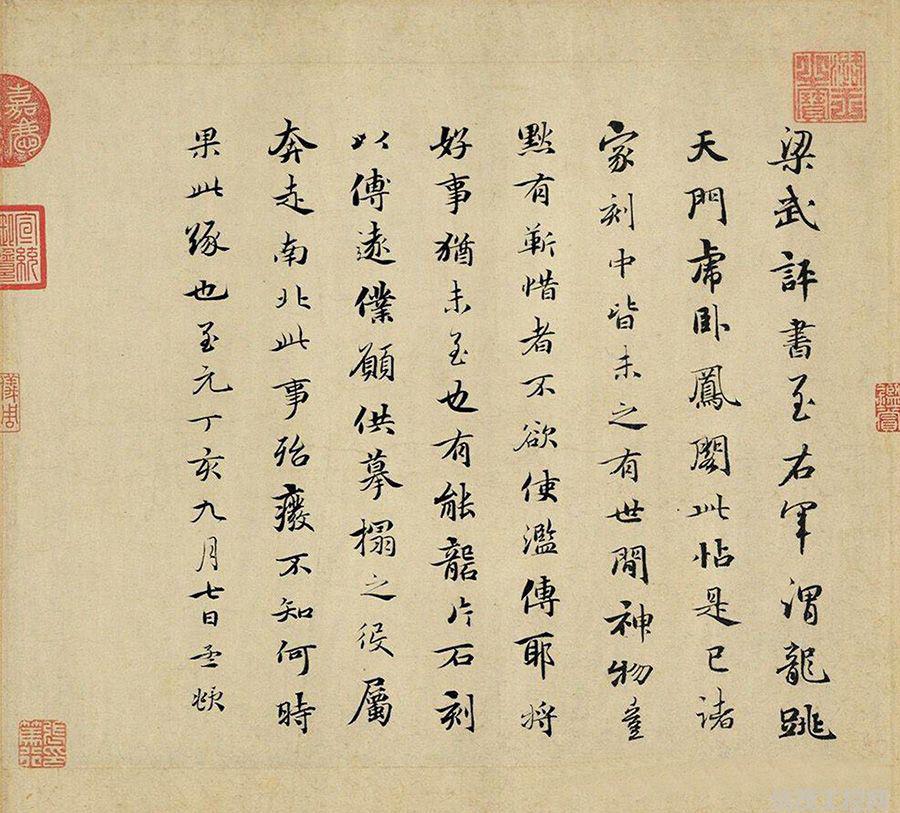 梁武評書至右軍謂龍跳
天門虎卧鳳閣此帖是已諸
家刻中皆未之有世間神物豈
默有靳惜者不欲使濫傳耶將
好事猶未至也有能礱片石刻
以傳遠僕願供摹搨之役屬
奔走南北此事殆癈不知何時
果此緣也至元丁亥九月七日孟頫
嘉慶
儀周